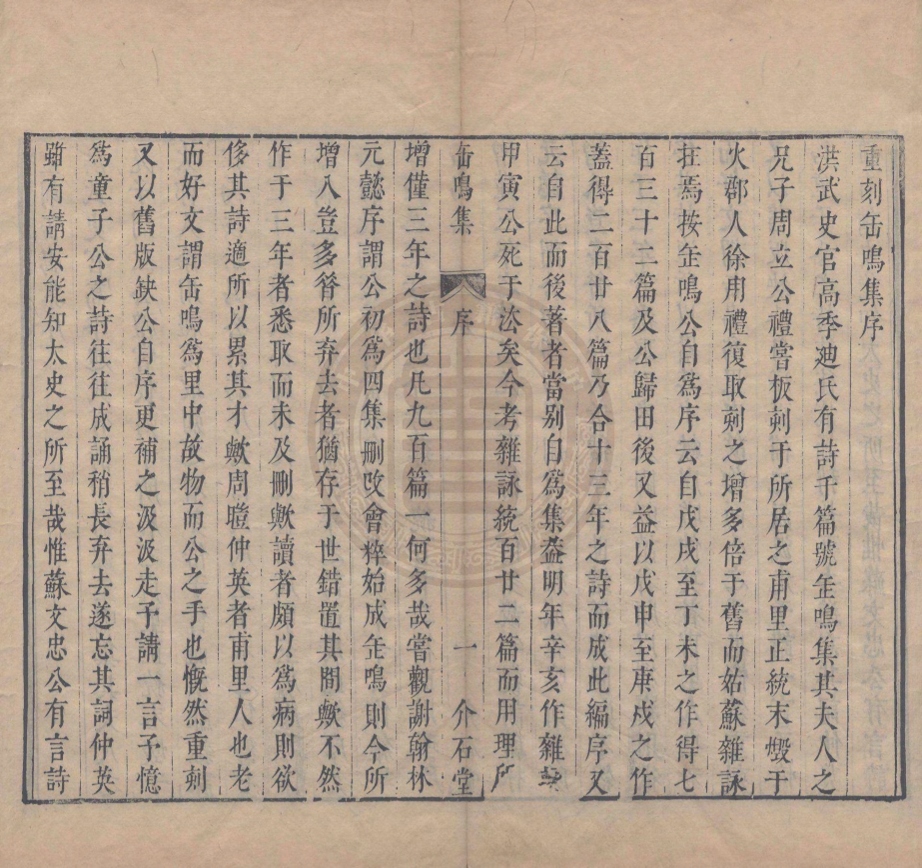 重刻缶鳴集序
洪武史官高季迪氏有詩千篇號缶鳴集其夫人之
兄子周立公禮嘗板刻于所居之甫里正統末燬于
火郡人徐用禮復取刻之增多倍于舊而姑蘇雜詠
在焉按缶鳴公自為序云自戊戌至丁未之作得七
百三十二篇及公歸田後又益以戊申至庚戌之作
蓋得二百廿八篇乃合十三年之詩而成此編序又
云自此而後著者當别自為集葢明年辛亥作雜詠
甲寅公死于法矣今考雜詠統百廿二篇而用理所
缶鳴集 序 一 介石堂
增僅三年之詩也凡九百篇一何多哉嘗觀謝翰林
元懿序謂公初為四集刪改會粹始成缶鳴則今所
增入豈多昝所弃去者猶存于世錯置其間歟不然
作于三年者悉取而未及刪歟讀者頗以為病則欲
侈其詩適所以累其才歟周瞪仲英者甫里人也老
而好文謂缶鳴為里中故物而公之手也慨然重刻
又以舊版缺公自序更補之汲汲走予請一言予憶
為童子公之詩往往成誦稍長弃去遂忘其詞仲英
雖有請安能知太史之所至哉惟蘇文忠公有言詩